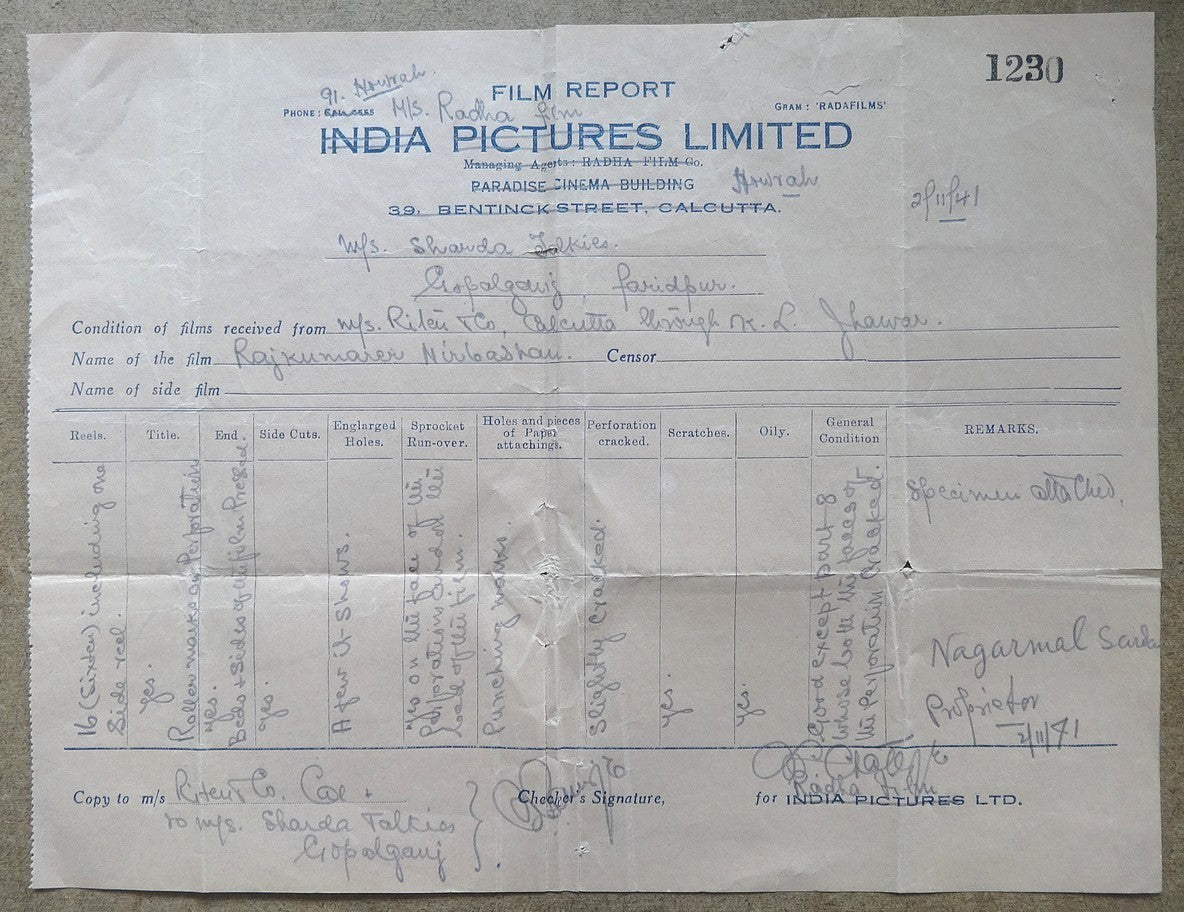 1230
91. Howrah.
FILM REPORT
PHONE: CAL.
M/s. Radha film
GRAM: 'RADAFILMS'
INDIA PICTURES LIMITED
Managing Agents: RADHA FILM Co.
PARADISE CINEMA BUILDING
Howrah
39, BENTINCK STREET, CALCUTTA.
2/11/41
M/s. Sharda Talkies.
Gopalganj, Faridpur.
Condition of films received from M/s. Riten & Co, Calcutta through K. L. Jhawar.
Name of the film Rajkumarer Nirbashan. Censor
Name of side film
Reels. Title. End. Side Cuts. Englarged Holes. Sprocket Run-over. Holes and pieces of Paper attachings. Perforation cracked. Scratches. Oily. General Condition REMARKS.
16 (Sixteen) including one
Side reel.
yes.
Roller marks on Perforation
yes.
Beds & Sides of the film Pressed.
yes.
A few U-Shows.
yes on the face of the
perforation and on the
of the film.
Punching marks.
Slightly Cracked.
yes.
yes.
Good except part 8
whose both the faces of
the Perforation Cracked.
Specimen attached.
Nagarmal Sarda
Proprietor
2/11/41
Copy to m/s Riten & Co. Cal.
to m/s. Sharda Talkies
Gopalganj
Checker's Signature,
Radha Film
for INDIA PICTURES LTD.